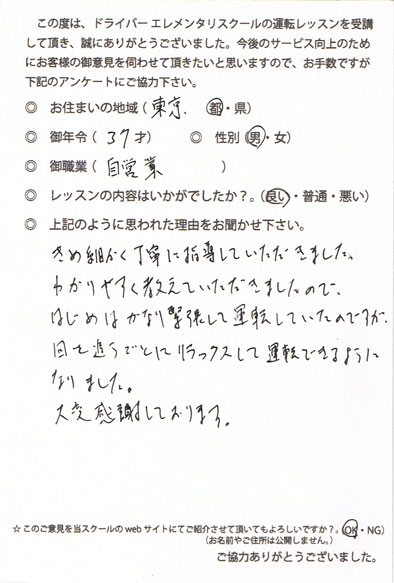 この度は、ドライバーエレメンタリスクールの運転レッスンを受講
して頂き、誠にありがとうございました。今後のサービス向上のため
にお客様の御意見を伺わせて頂きたいと思いますので、お手数ですが
下記のアンケートにご協力下さい。
◎ お住まいの地域(東京. 都・県)
◎ 御年令(37才) ◎ 性別(男・女)
◎ 御職業(自営業)
◎ レッスンの内容はいかがでしたか?。(良い・普通・悪い)
◎ 上記のように思われた理由をお聞かせ下さい。
きめ細かく丁寧に指導していただきました。
わかりやすく教えていただきましたので、
はじめはかなり緊張して運転していたのですが、
日を追うごとにリラックスして運転できるように
なりました。
大変感謝しております。
☆このご意見を当スクールの web サイトにてご紹介させて頂いてもよろしいですか?。(OK・NG)
(お名前やご住所は公開しません。)
ご協力ありがとうございました。